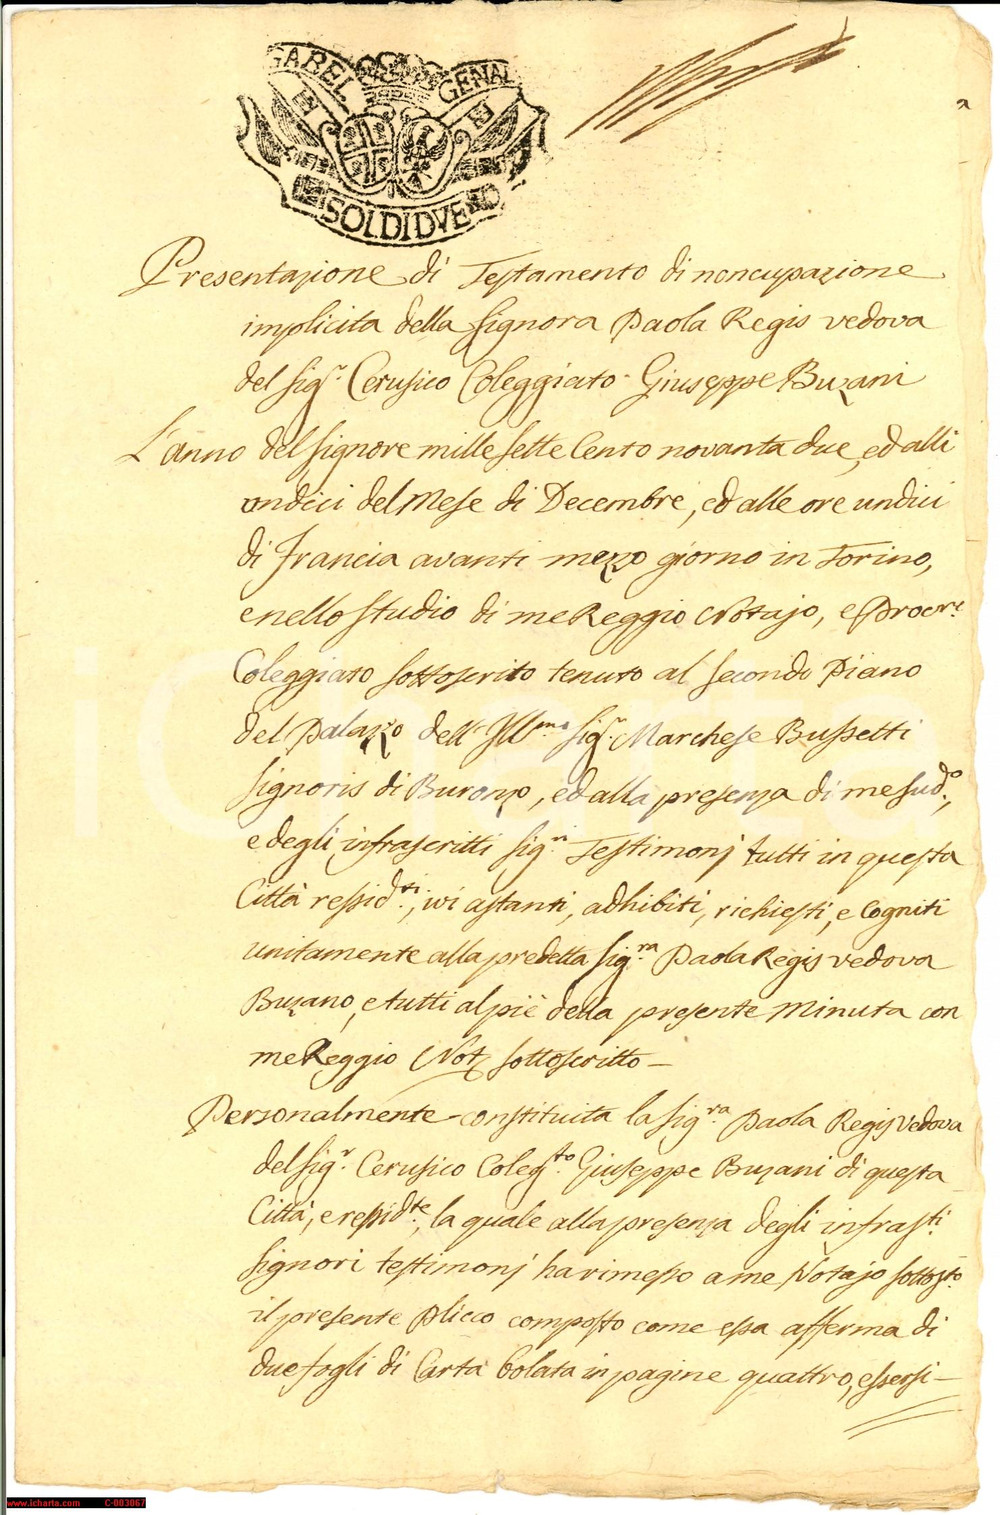 GABEL GENAL
SOLDI DVE
Presentazione di Testamento di noncupazione
implicita della Signora Paola Regis vedova
del Sig.r Cerusico Coleggiato Giuseppe Buzani
L'anno del Signore mille sette Cento novanta due, ed alli
undici del Mese di Decembre, ed alle ore undici
di Francia avanti mezzo giorno in Torino,
e nello Studio di me Reggio Notajo, e Procre.
Coleggiato sottoscrito tenuto al secondo Piano
del Palazzo dell' Ill.mo Sig.r Marchese Bussetti
Signoris di Buronzo, ed alla presenza di me sud.o,
e degli infrascritti Sig.ri Testimonj tutti in questa
Città ressid.ti, ivi astanti, adhibiti, richiesti, e Cogniti
unitamente alla predetta Sig.ra Paola Regis vedova
Buzano, e tutti al piè della presente Minuta con
me Reggio Not. sottoscritto —
Personalmente constituita la Sig.ra Paola Regis vedova
del Sig.r Cerusico Coleg.to Giuseppe Buzani di questa
Città, e ressid.te, la quale alla presenza degli infrasti.
Signori testimonj ha rimesso a me Notajo sottos.to
il presente Plicco composto come essa afferma di
due fogli di Carta bolata in pagine quattro, essersi —
icharta
www.icharta.com C-003067